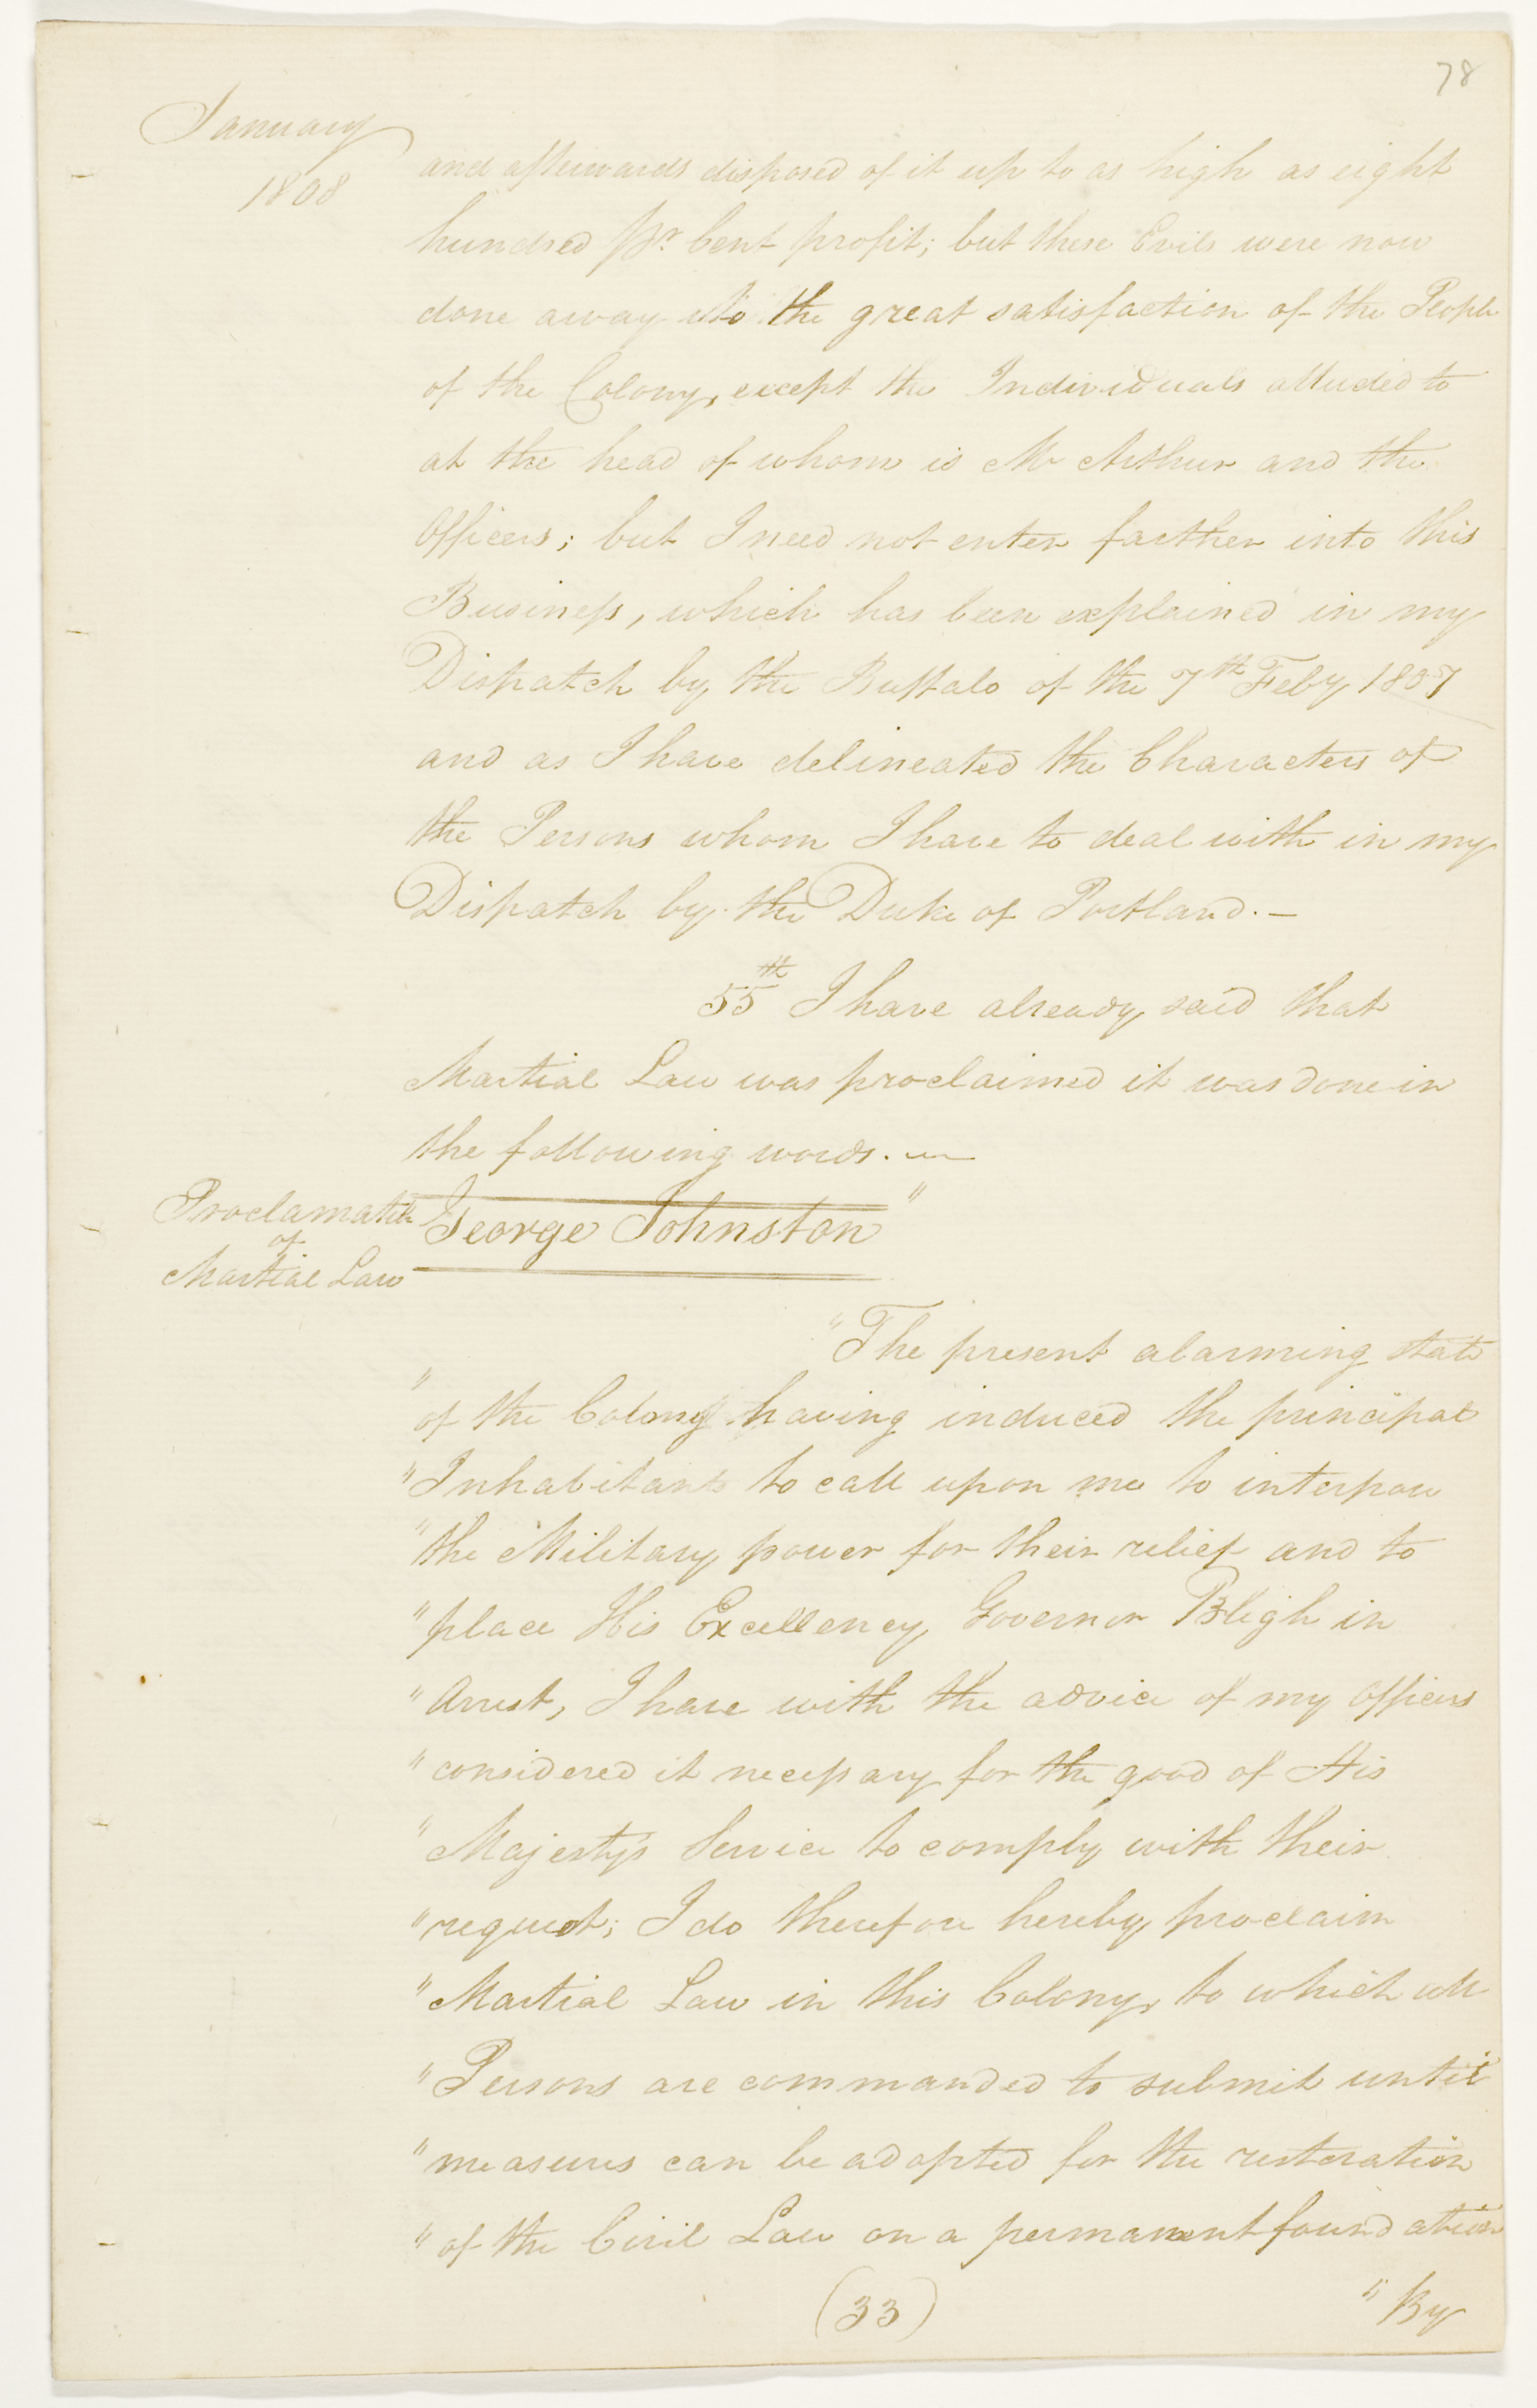 78
January
1808
and afterwards disposed of it up to as high as eight
hundred pr Cent profit; but these Evils were now
done away to the great satisfaction of the People
of the Colony, except the Individuals alluded to
at the head of whom is Mr Arthur and the
Officers; but I need not enter farther into this
Business, which has been explained in my
Dispatch by the Buffalo of the 7th Feby 1807
and as I have delineated the Characters of
the Persons whom I have to deal with in my
Dispatch by the Duke of Portland. —
55th I have already said that
Martial Law was proclaimed it was done in
the following words. —
Proclamation
of
Martial Law
George Johnston "
"The present alarming state
" of the Colony having induced the principal
" Inhabitants to call upon me to interpose
" the Military power for their relief and to
" place His Excellency Governor Bligh in
" Arrest, I have with the advice of my Officers
" considered it necessary for the good of His
" Majestys Service to comply with their
" request; I do therefore hereby proclaim
" Martial Law in this Colony, to which all
" Persons are commanded to submit until
" measures can be adopted for the restoration
" of the Civil Law on a permanent foundation
(33)
" By